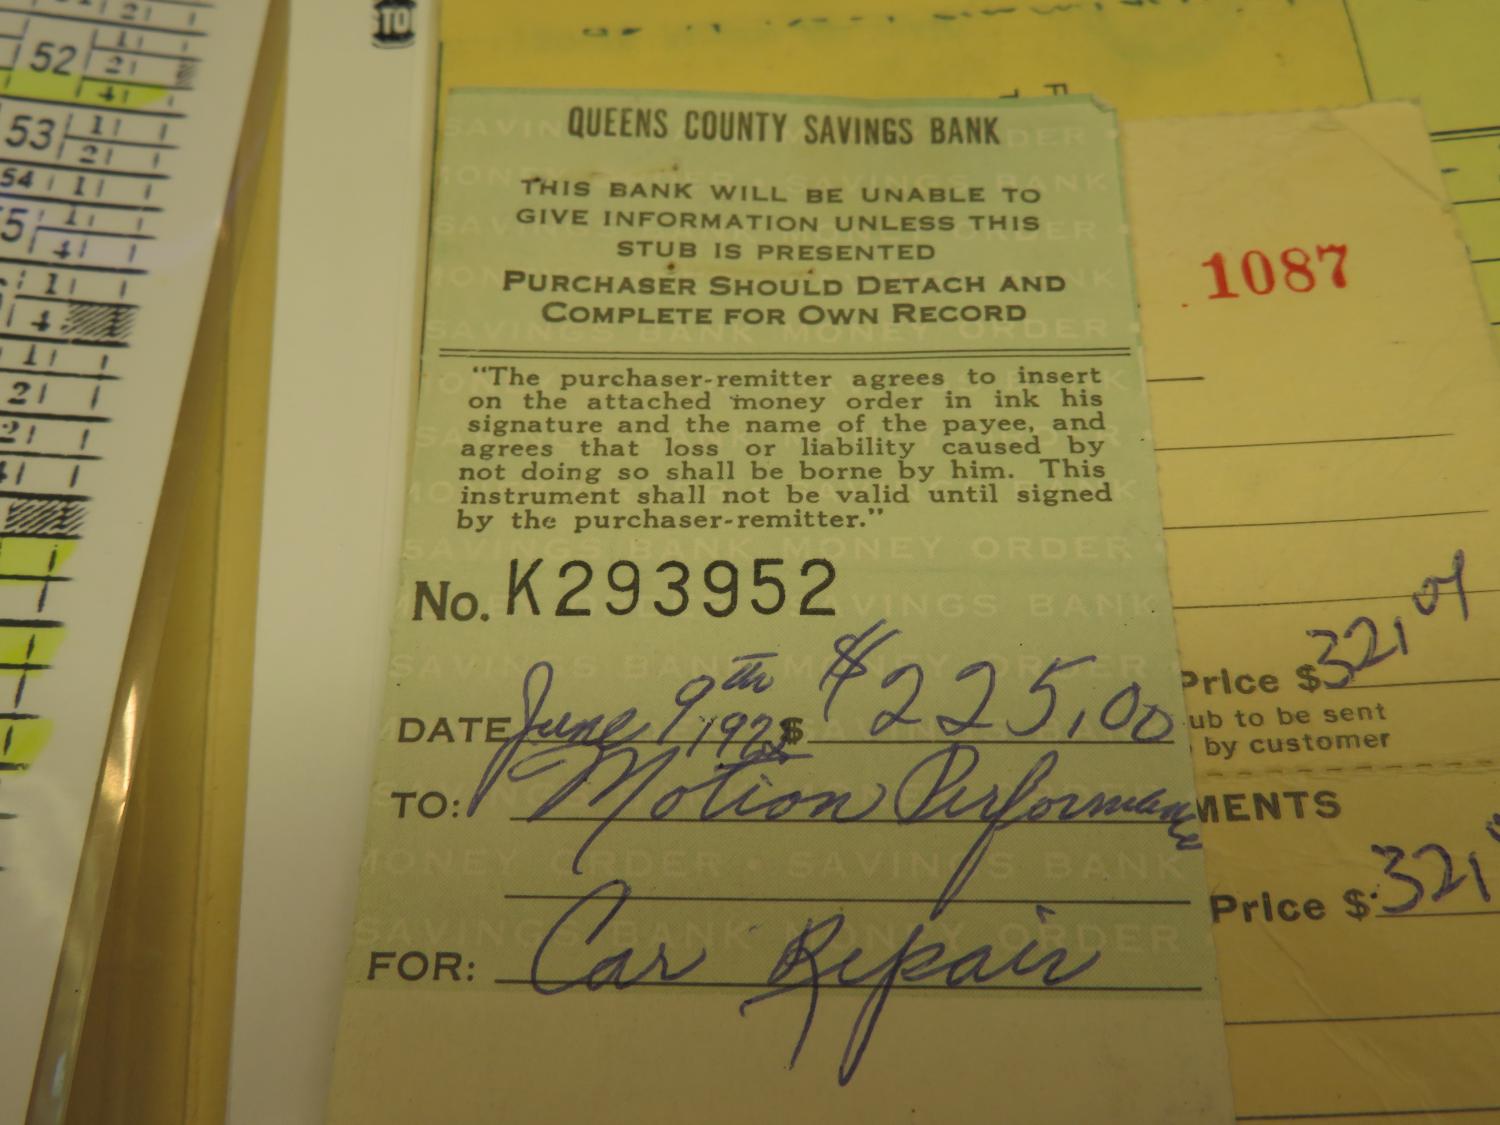 STO
52
53
54
QUEENS COUNTY SAVINGS BANK
THIS BANK WILL BE UNABLE TO
GIVE INFORMATION UNLESS THIS
STUB IS PRESENTED
PURCHASER SHOULD DETACH AND
COMPLETE FOR OWN RECORD
"The purchaser-remitter agrees to insert
on the attached money order in ink his
signature and the name of the payee, and
agrees that loss or liability caused by
not doing so shall be borne by him. This
instrument shall not be valid until signed
by the purchaser-remitter."
No. K293952
DATE June 9th $ $225.00
TO: Motion Performance
FOR: Car Repair
1087
Price $321
ub to be sent
by customer
MENTS
Price $ 321